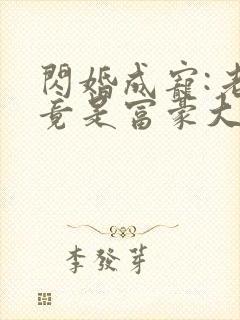 閃婚成寵:老
竟是富豪大
李發芽